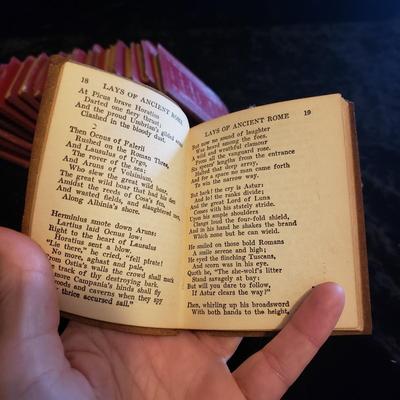 18
LAYS OF ANCIENT ROME
At Picus brave Horatius
Darted one fiery thrust;
And the proud Umbrian's gilded arms
Clashed in the bloody dust.
Then Ocnus of Falerii
Rushed on the Roman Three;
And Lausulus of Urgo,
The rover of the sea;
And Aruns of Volsinium,
Who slew the great wild boar,
The great wild boar that had his den
Amidst the reeds of Cosa's fen,
And wasted fields, and slaughtered men,
Along Albinia's shore.
Herminius smote down Aruns:
Lartius laid Ocnus low:
Right to the heart of Lausulus
Horatius sent a blow.
"Lie there," he cried, "fell pirate!
No more, aghast and pale,
From Ostia's walls the crowd shall mark
The track of thy destroying bark.
No more Campania's hinds shall fly
woods and caverns when they spy
thrice accursed sail."
LAYS OF ANCIENT ROME
19
But now no sound of laughter
Was heard among the foes.
A wild and wrathful clamour
From all the vanguard rose.
Six spears' lengths from the entrance
Halted that deep array,
And for a space no man came forth
To win the narrow way.
But hark! the cry is Astur:
And lo! the ranks divide;
And the great Lord of Luna
Comes with his stately stride.
Upon his ample shoulders
Clangs loud the four-fold shield,
And in his hand he shakes the brand
Which none but he can wield.
He smiled on those bold Romans
A smile serene and high;
He eyed the flinching Tuscans,
And scorn was in his eye.
Quoth he, "The she-wolf's litter
Stand savagely at bay:
But will you dare to follow,
If Astur clears the way?"
Then, whirling up his broadsword
With both hands to the height,